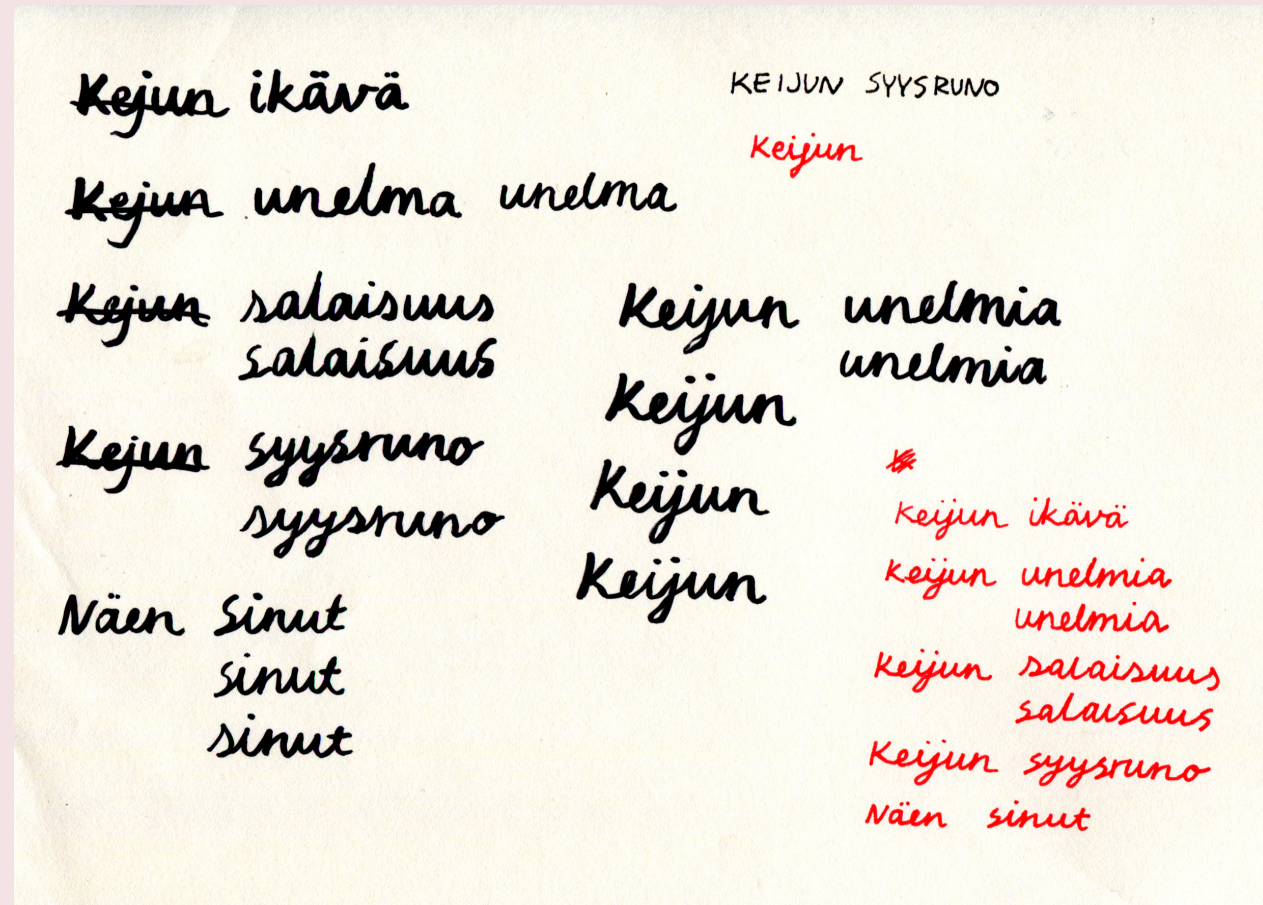 Kejun ikävä
Kejun unelma unelma
Kejun salaisuus
salaisuus
Kejun syysruno
syysruno
Näen sinut
sinut
sinut
KEIJUN SYYSRUNO
Keijun
Keijun unelmia
unelmia
Keijun
Keijun
Keijun
Keijun ikävä
Keijun unelmia
unelmia
Keijun salaisuus
salaisuus
Keijun syysruno
Näen sinut